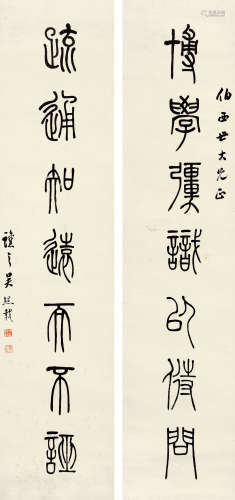 伯西世大兄正
博學彊識以待問
疏通知遠而不誣
讓之吳熙載